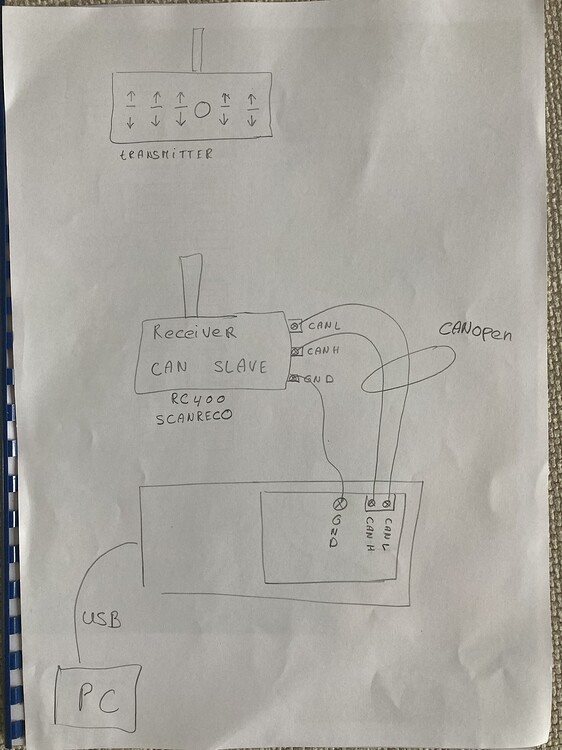 tRANSMITTER
Receiver
CAN SLAVE
RC400
SCANRECO
CANL
CANH
GND
CANopen
GND
CAN H
CAN L
USB
PC